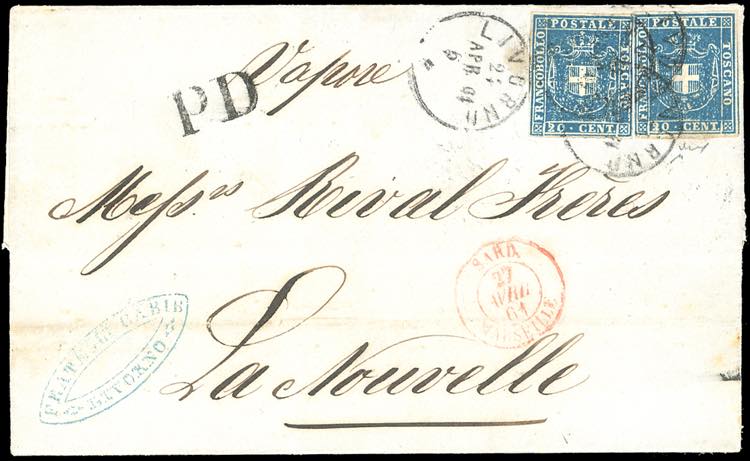 Vapore
PD
LIVORNO
24
APR. 61
FRANCOBOLLO POSTALE TOSCANO
20 CENT.
FRANCOBOLLO POSTALE TOSCANO
20 CENT.
Mess.rs Rival Frères
SARD.
27
AVRIL
61
MARSEILLE
FRATELLI CABIB
LIVORNO
La Nouvelle